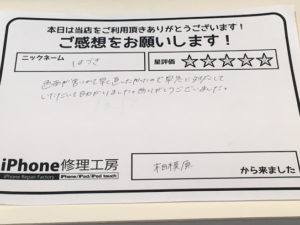 本日は当店をご利用頂きありがとうございます！
ご感想をお願いします！
ニックネーム
はづき
星評価 ☆☆☆☆☆
画面が割れて早く直したかったので早急に対応して
いただいて助かりました。ありがとうございました。
iPhone修理工房
iPhone Repair Factory
iPhone/iPad/iPod touch
相模原
から来ました